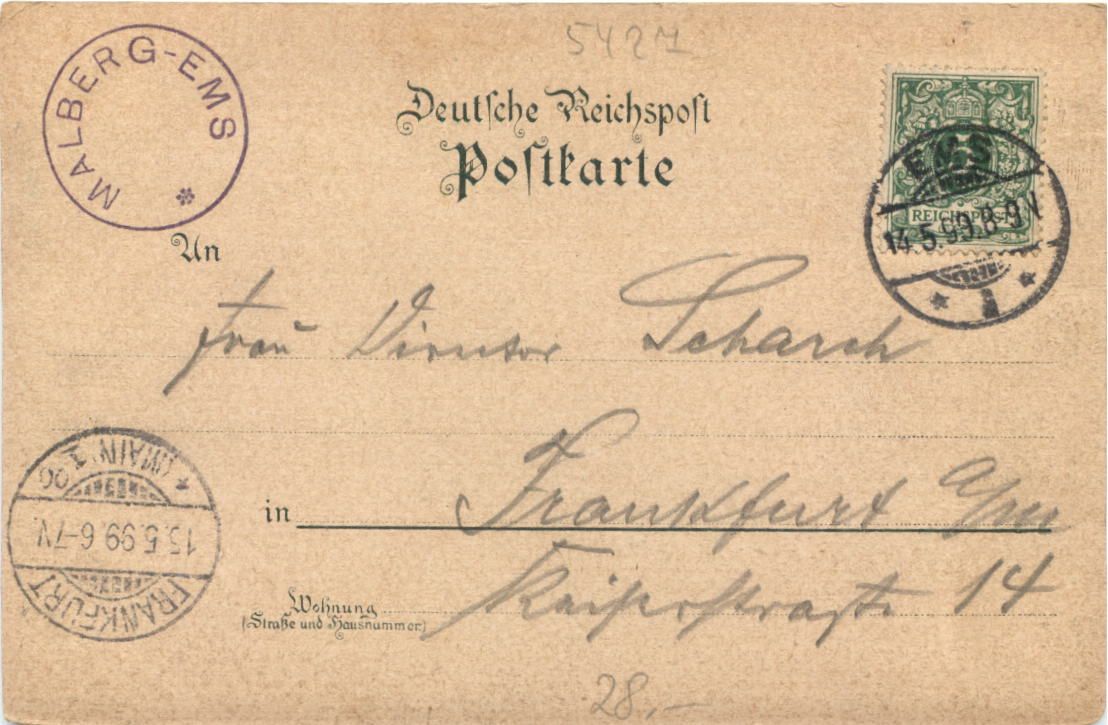 5427
MALBERG-EMS
Deutsche Reichspost
Postkarte
EMS
REICHSPOST
14.5.99.8-9V
An
Frau Director Scharch
FRANKFURT (MAIN)
15.5.99 6-7V
in Frankfurt a/m
Wohnung
(Straße und Hausnummer)
Kaiserstraße 14
28,-